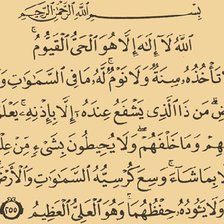 بِسْمِ ٱللَّهِ ٱلرَّحْمَٰنِ ٱلرَّحِيمِ
ٱللَّهُ لَآ إِلَٰهَ إِلَّا هُوَ ٱلْحَىُّ ٱلْقَيُّومُ ۚ
لَا تَأْخُذُهُۥ سِنَةٌ وَلَا نَوْمٌ ۚ لَّهُۥ مَا فِى ٱلسَّمَٰوَٰتِ وَ
مَن ذَا ٱلَّذِى يَشْفَعُ عِندَهُۥٓ إِلَّا بِإِذْنِهِۦ ۚ يَعْلَمُ
وَمَا خَلْفَهُمْ ۖ وَلَا يُحِيطُونَ بِشَىْءٍ مِّنْ عِلْ
بِمَا شَآءَ ۚ وَسِعَ كُرْسِيُّهُ ٱلسَّمَٰوَٰتِ وَٱلْأَرْضَ
وَلَا يَـُٔودُهُۥ حِفْظُهُمَا ۚ وَهُوَ ٱلْعَلِىُّ ٱلْعَظِيمُ ٢٥٥